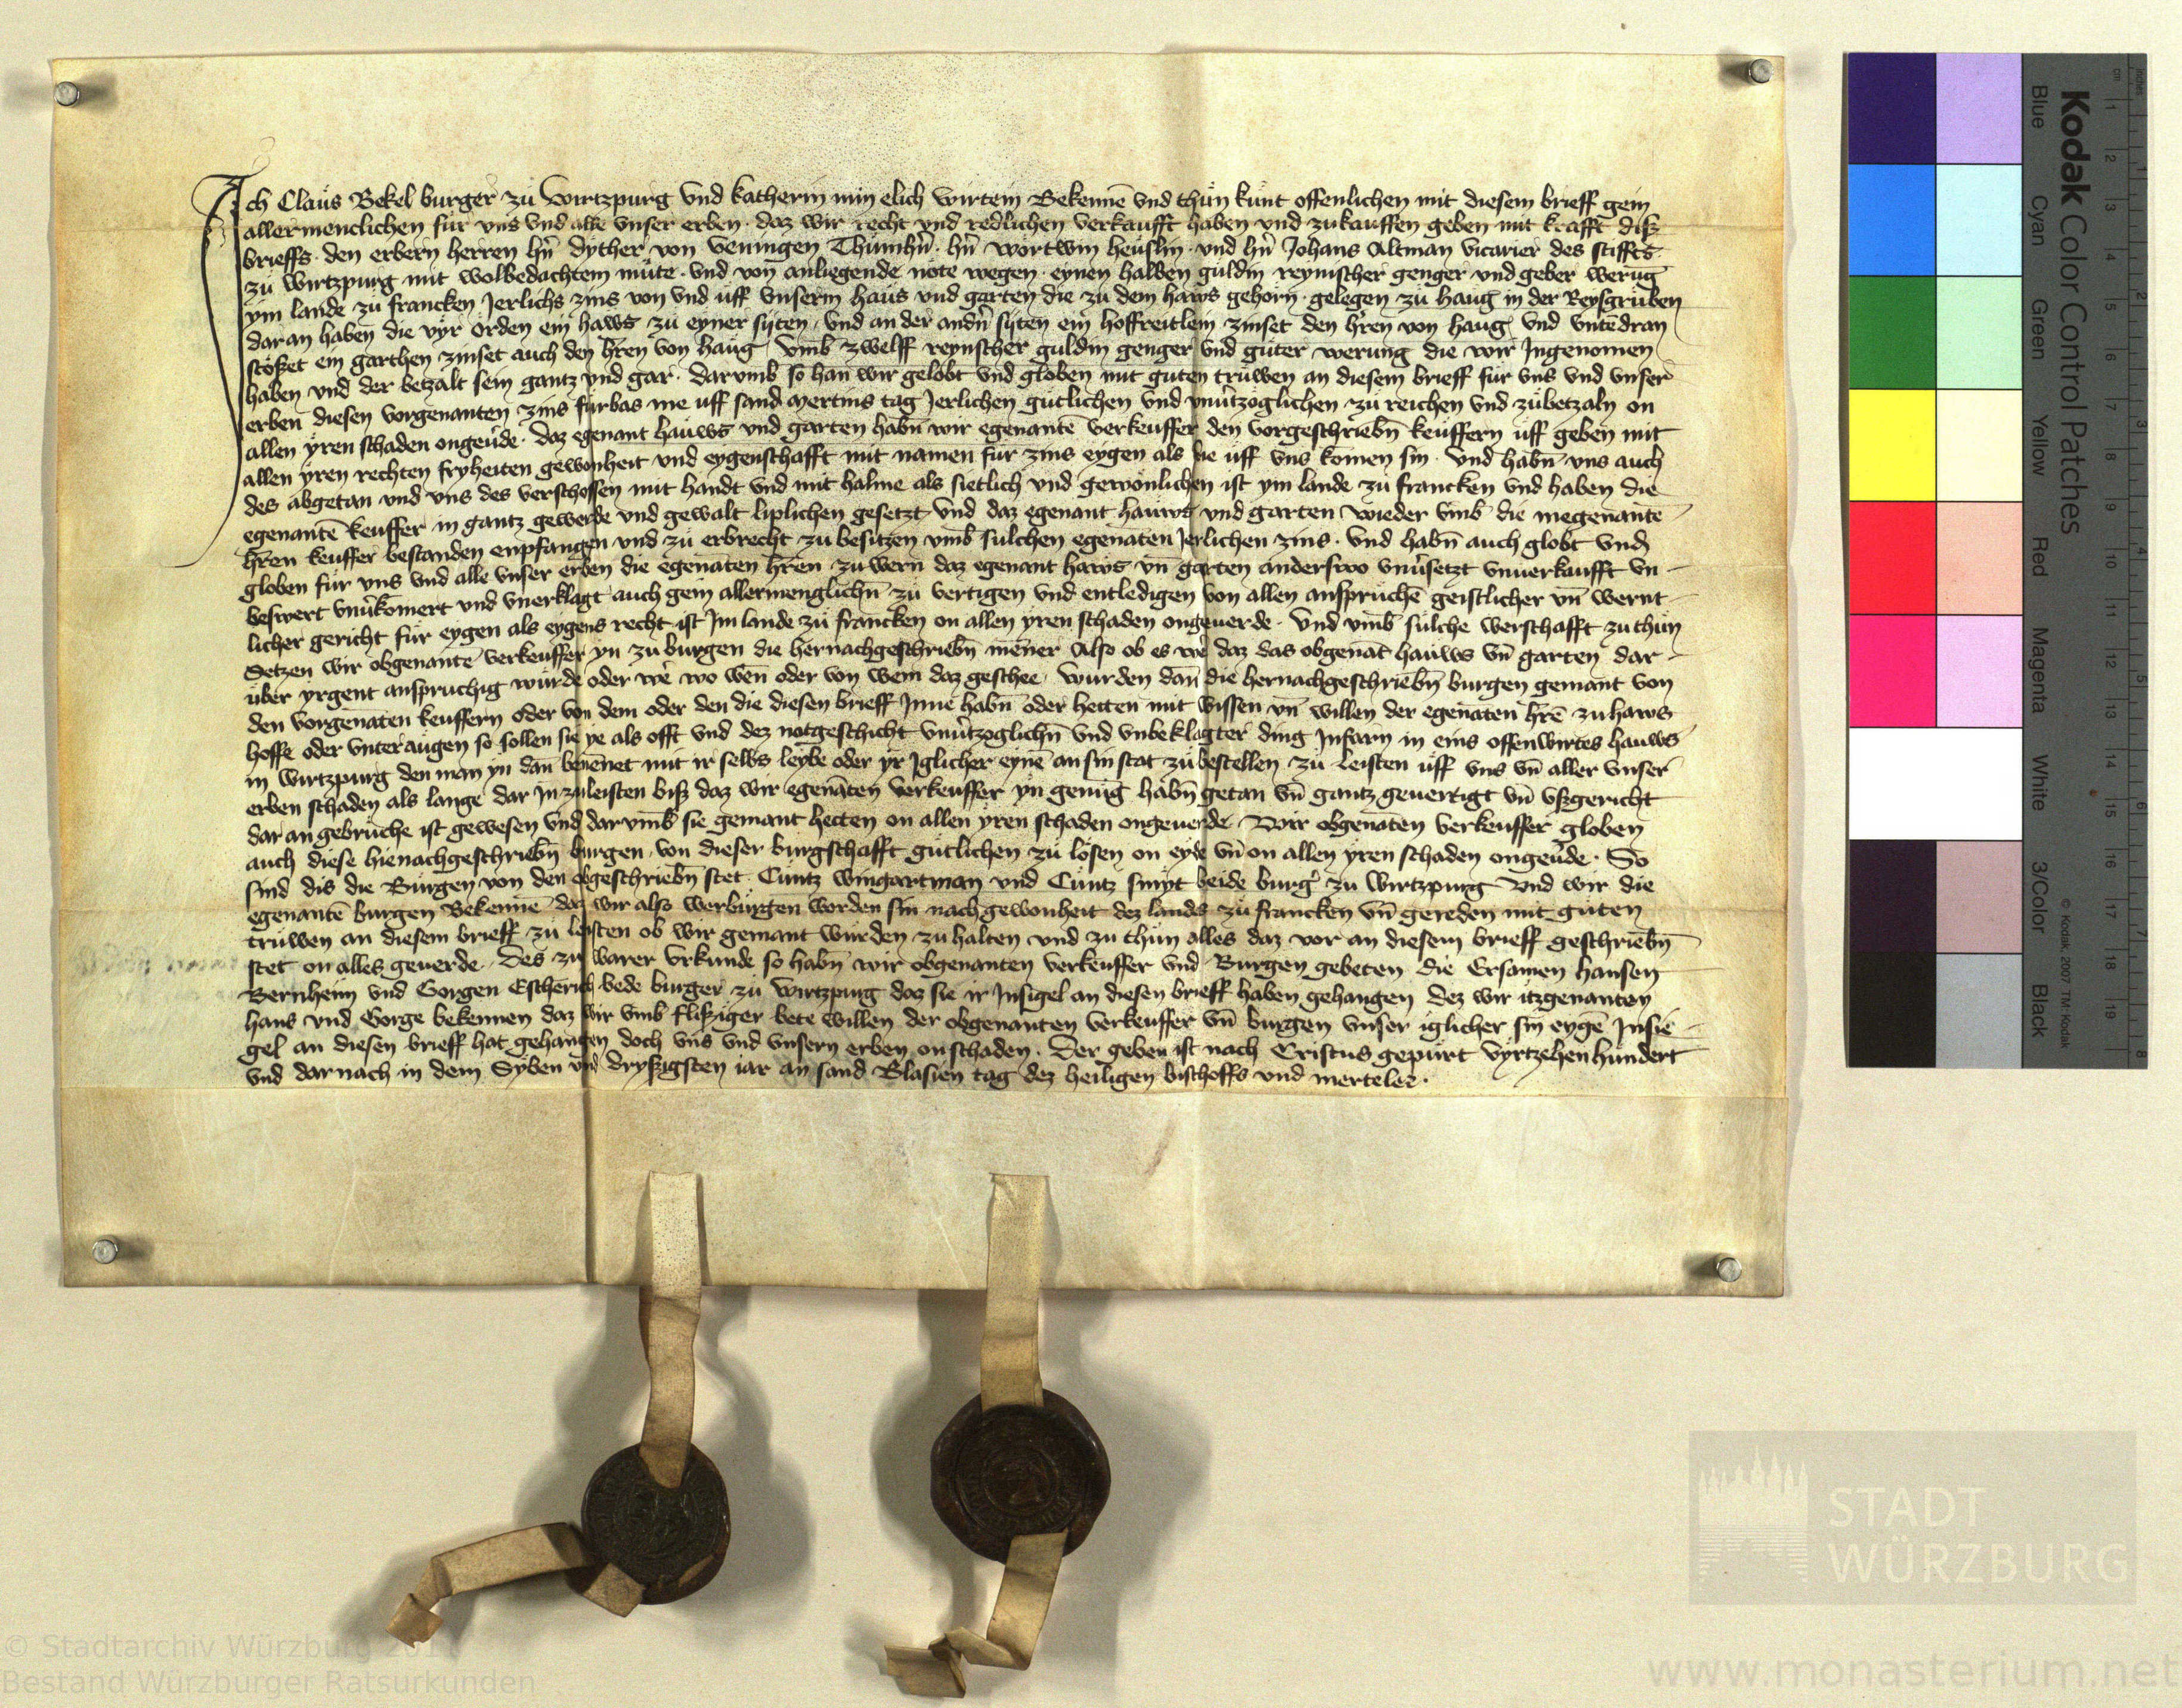 Ich Claus Bekel burger zu Wirtzpurg vnd katherin min elich wirtein Bekennē vnd thun kunt offenlichen mit diesem brieff gein
allermenclichen fur vns vnd alle vnser erben · daz wir recht vnd redlichen verkaufft haben vnd zukauffen geben mit krafft diß
brieffs · den erbern herren hn̄ dyther von Veningen Thumhn̄ · hn̄ wortwin heuslin · vnd hn̄ Johans Altman vicarier des stiffts
zu Wirtzpurg mit wolbedachtem mute · vnd von anligende note wegen · eynen halben guldin reynischer genger vnd geber werūg
ym lande zu francken Jerlichs zins von vnd uff vnserm haus vnd garten die zu dem haws gehorn · gelegen zu haug in der Reysgruben
daran haben die vyr orden ein haws zu eyner syten · vnd an der andn̄ syten ein hoffreitlein zinset den hr̄en von haug vnd vntēdran
stoßet ein garthen zinset auch den hr̄en von haug vmb zwelff reynscher guldin genger vnd guter werung die wir Jngenomen
haben vnd der betzalt sein gantz vnd gar · darvmb so han wir gelobt vnd globen mit guten truwen an diesem brieff fur vns vnd vnser
erben diesen vorgenanten zins furbas me uff sand mertins tag Jerlichen gutlichen vnd vnūtzoglichen zu reichen vnd zubetzaln on
allen yren schaden ongeūde · Daz egenant hauws vnd garten habn̄ wir egenantē verkeuffer den vorgeschriebn̄ keuffern uff geben mit
allen yren rechten fryheiten gewonheit vnd eygenschafft mit namen fur zins eygen als sie uff vns komen sin · vnd habn̄ vns auch
des abgetan vnd vns des verschossen mit handt vnd mit halme als sietlich vnd gewonlichen ist ym lande zu francken vnd haben die
egenantē keuffer in gantz gewerde vnd gewalt liplichen gesetzt vnd daz egenant hauws vnd garten wieder vmb die megenantē
hr̄en keuffer bestanden enpfangen vnd zu erbrecht zu besitzen vmb sulchen egenāten Jerlichen zins · vnd habn̄ auch globt vnd
globen fur vns vnd alle vnser erben die egenāten hr̄en zu wern daz egenant haws vn̄ garten anderswo vnūsetzt vnuerkaufft vn
beswert vnūkomert vnd vnerklagt auch gein allermenglichn̄ zu vertigen vnd entledigen von allen anspruchē geistlicher vn̄ wernt
licher gericht fur eygen als eygens recht ist Jm lande zu francken on allen yren schaden ongeuerde · Vnd vmb sulche werschafft zu thun
Setzen wir obgenantē verkeuffer yn zu burgen die hernachgeschriebn̄ menner Also ob es wē daz das obgenāt hauws vn̄ garten dar
uber yrgent anspruchig wurde oder wē wo wen̄ oder von wem daz geschee · wurden dan̄ die hernachgeschriebn̄ burgen gemant von
den vorgenāten keuffern oder von dem oder den die diesen brieff Jnne habn̄ oder hetten mit wissen vn̄ willen der egenāten hr̄ē zu haws
hoffe oder vnter augen so sollen sie ye als offt vnd dez notgeschicht vnūtzoglichn̄ vnd vnbeklagter ding Jnfarn in eins offenwirtes hauws
in wirtzpurg den man yn dan̄ benenet mit ir selbs leybe oder yr Jglicher eynē an sin stat zu bestellen zu leisten uff vns vn̄ aller vnser
erben schaden als lange dar Jn zuleisten biß daz wir egenāten verkeuffer yn genūg habn̄ getan vn̄ gantz geuertigt vn̄ vßgericht
dar an gebruche ist gewesen vnd darvmb sie gemant hetten on allen yren schaden ongeuerde Wir obgenāten verkeuffer globen
auch diese hienachgeschriebn̄ burgen · von dieser burgschafft gutlichen zu losen on eyde vn̄ on allen yren schaden ongeūde · So
sind dis die Burgen von den obgeschriebn̄ stet · Cuntz wingartman vnd Cuntz smyt beide burḡ zu Wirtzpurg Vnd wir die
egenantē burgen Bekenne daz wir also werburgen worden sin nach gewonheit dez lands zu francken vn̄ gereden mit guten
truwen an diesem brieff zu leisten ob wir gemant wurden zu halten vnd zu thun alles daz vor an diesem brieff geschriebn̄
stet on alles geuerde · Des zu warer vrkunde so habn̄ wir obgenanten verkeuffer vnd Burgen gebeten die Ersamen hansen
Bernheim vnd Gorgen Escherich bede burger zu wirtzpurg daz sie ir Jnsigel an diesen brieff haben gehangen dez wir itzgenanten
hans vnd Gorge bekennen daz wir vmb flißiger bete willen der obgenanten verkeuffer vn̄ burgen vnser iglicher sin eygē Jnsie
gel an diesen brieff hat gehangen doch vns vnd vnsern erben on schaden · Der geben ist nach Cristus gepurt vyrtzehenhundert
vnd darnach in dem Syben vnd dryßigsten iar an sand Blasien tag dez heiligen bischoffs vnd merteler ·
Kodak Color Control Patches
Blue Cyan Green Yellow Red Magenta White 3/Color Black
© Kodak, 2007 TM: Kodak
cm 1 2 3 4 5 6 7 8 9 10 11 12 13 14 15 16 17 18 19
inches 1 2 3 4 5 6 7 8
STADT
WÜRZBURG
© Stadtarchiv Würzburg
Bestand Würzburger Ratsurkunden
www.monasterium.net